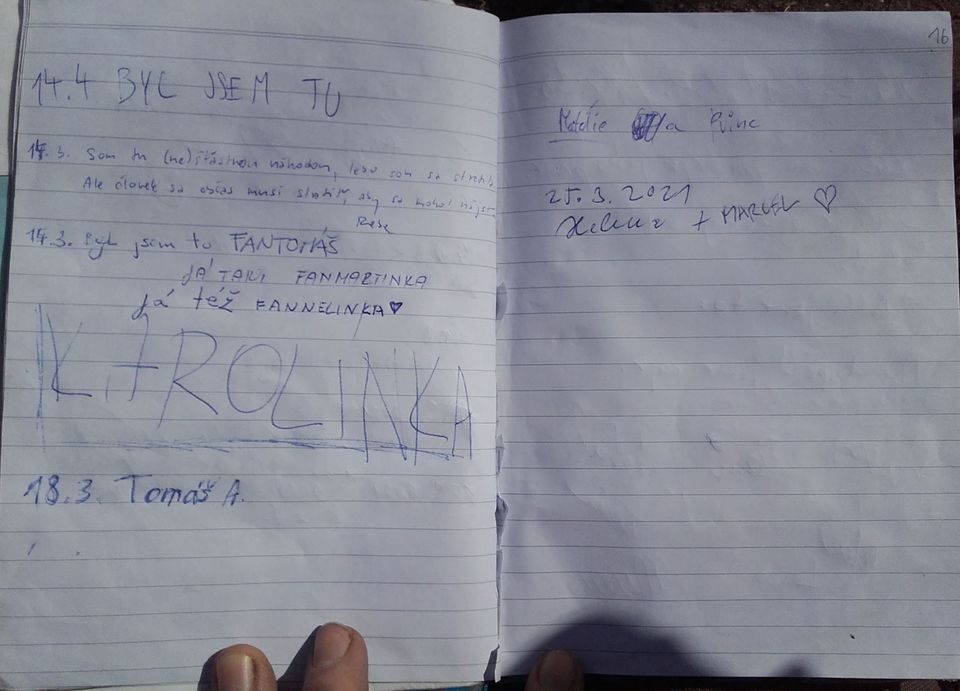 14.4 BYL JSEM TU
14.3. Som tu (ne)šťastnou náhodou, lebo som sa stratil.
Ale človek sa občas musí stratiť, aby sa mohol nájsť.
14.3. Byl jsem tu FANTOMÁŠ
JÁ TAKY FANMARTINKA
Já též FANNELINKA♥
KAROLINKA
18.3. Tomáš A.
16
a
25.3.2021
+ MARCEL ♡